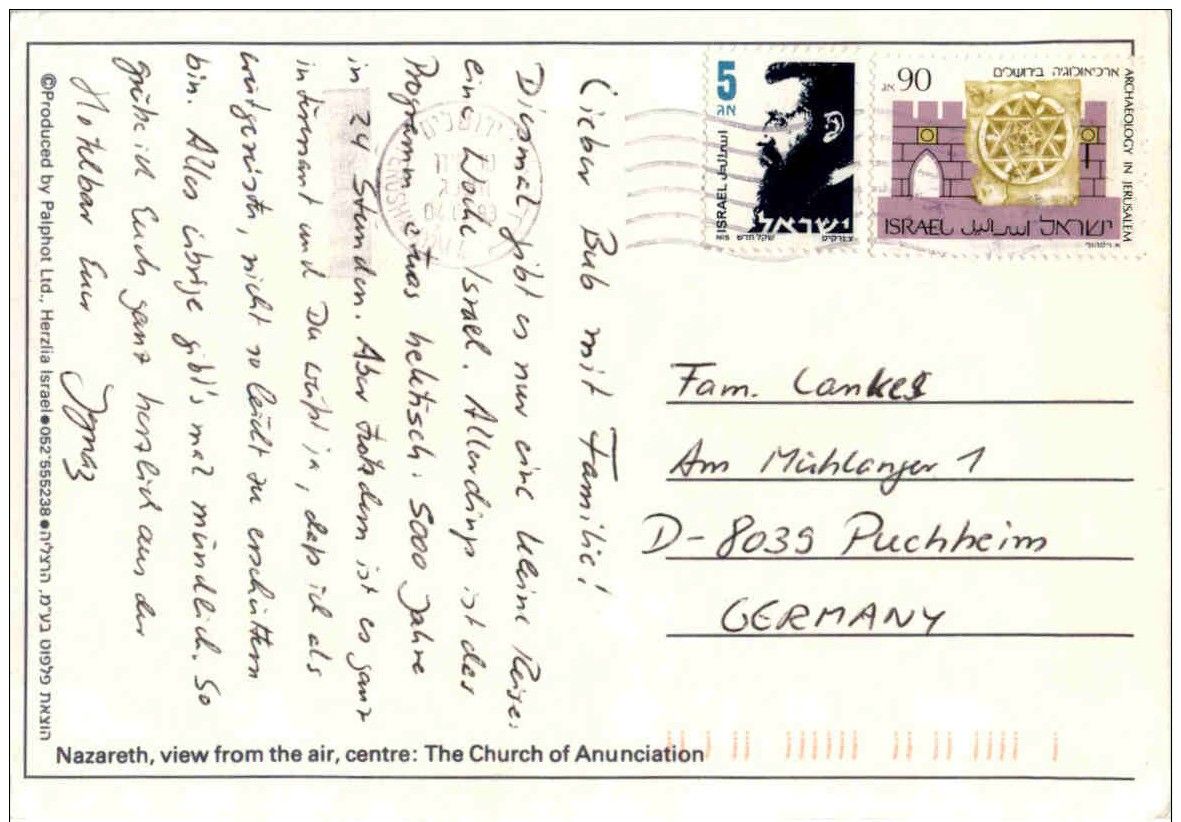 Lieber Bub mit Familie!
Diesmal gibt es nur eine kleine Reise:
eine Woche Israel. Allerdings ist das
Programm etwas hektisch: 5000 Jahre
in 24 Stunden. Aber trotzdem ist es ganz
interessant und Du weißt ja, daß ich als
weitgereister, nicht so leicht zu erschüttern
bin. Alles übrige gibt's mal mündlich. So
grüße ich Euch ganz herzlich aus der
Euer Ignaz
©Produced by Palphot Ltd., Herzlia Israel●052'555238●הוצאת פלפוט בע"מ, הרצליה
Nazareth, view from the air, centre: The Church of Anunciation
5
אג
ISRAEL اسرائيل
ישראל
שקל חדש
90 אג
ארכיאולוגיה בירושלים
ARCHAEOLOGY IN JERUSALEM
ISRAEL اسرائيل ישראל
ירושלים
Fam. Lankes
Am Mühlanger 1
D-8039 Puchheim
GERMANY